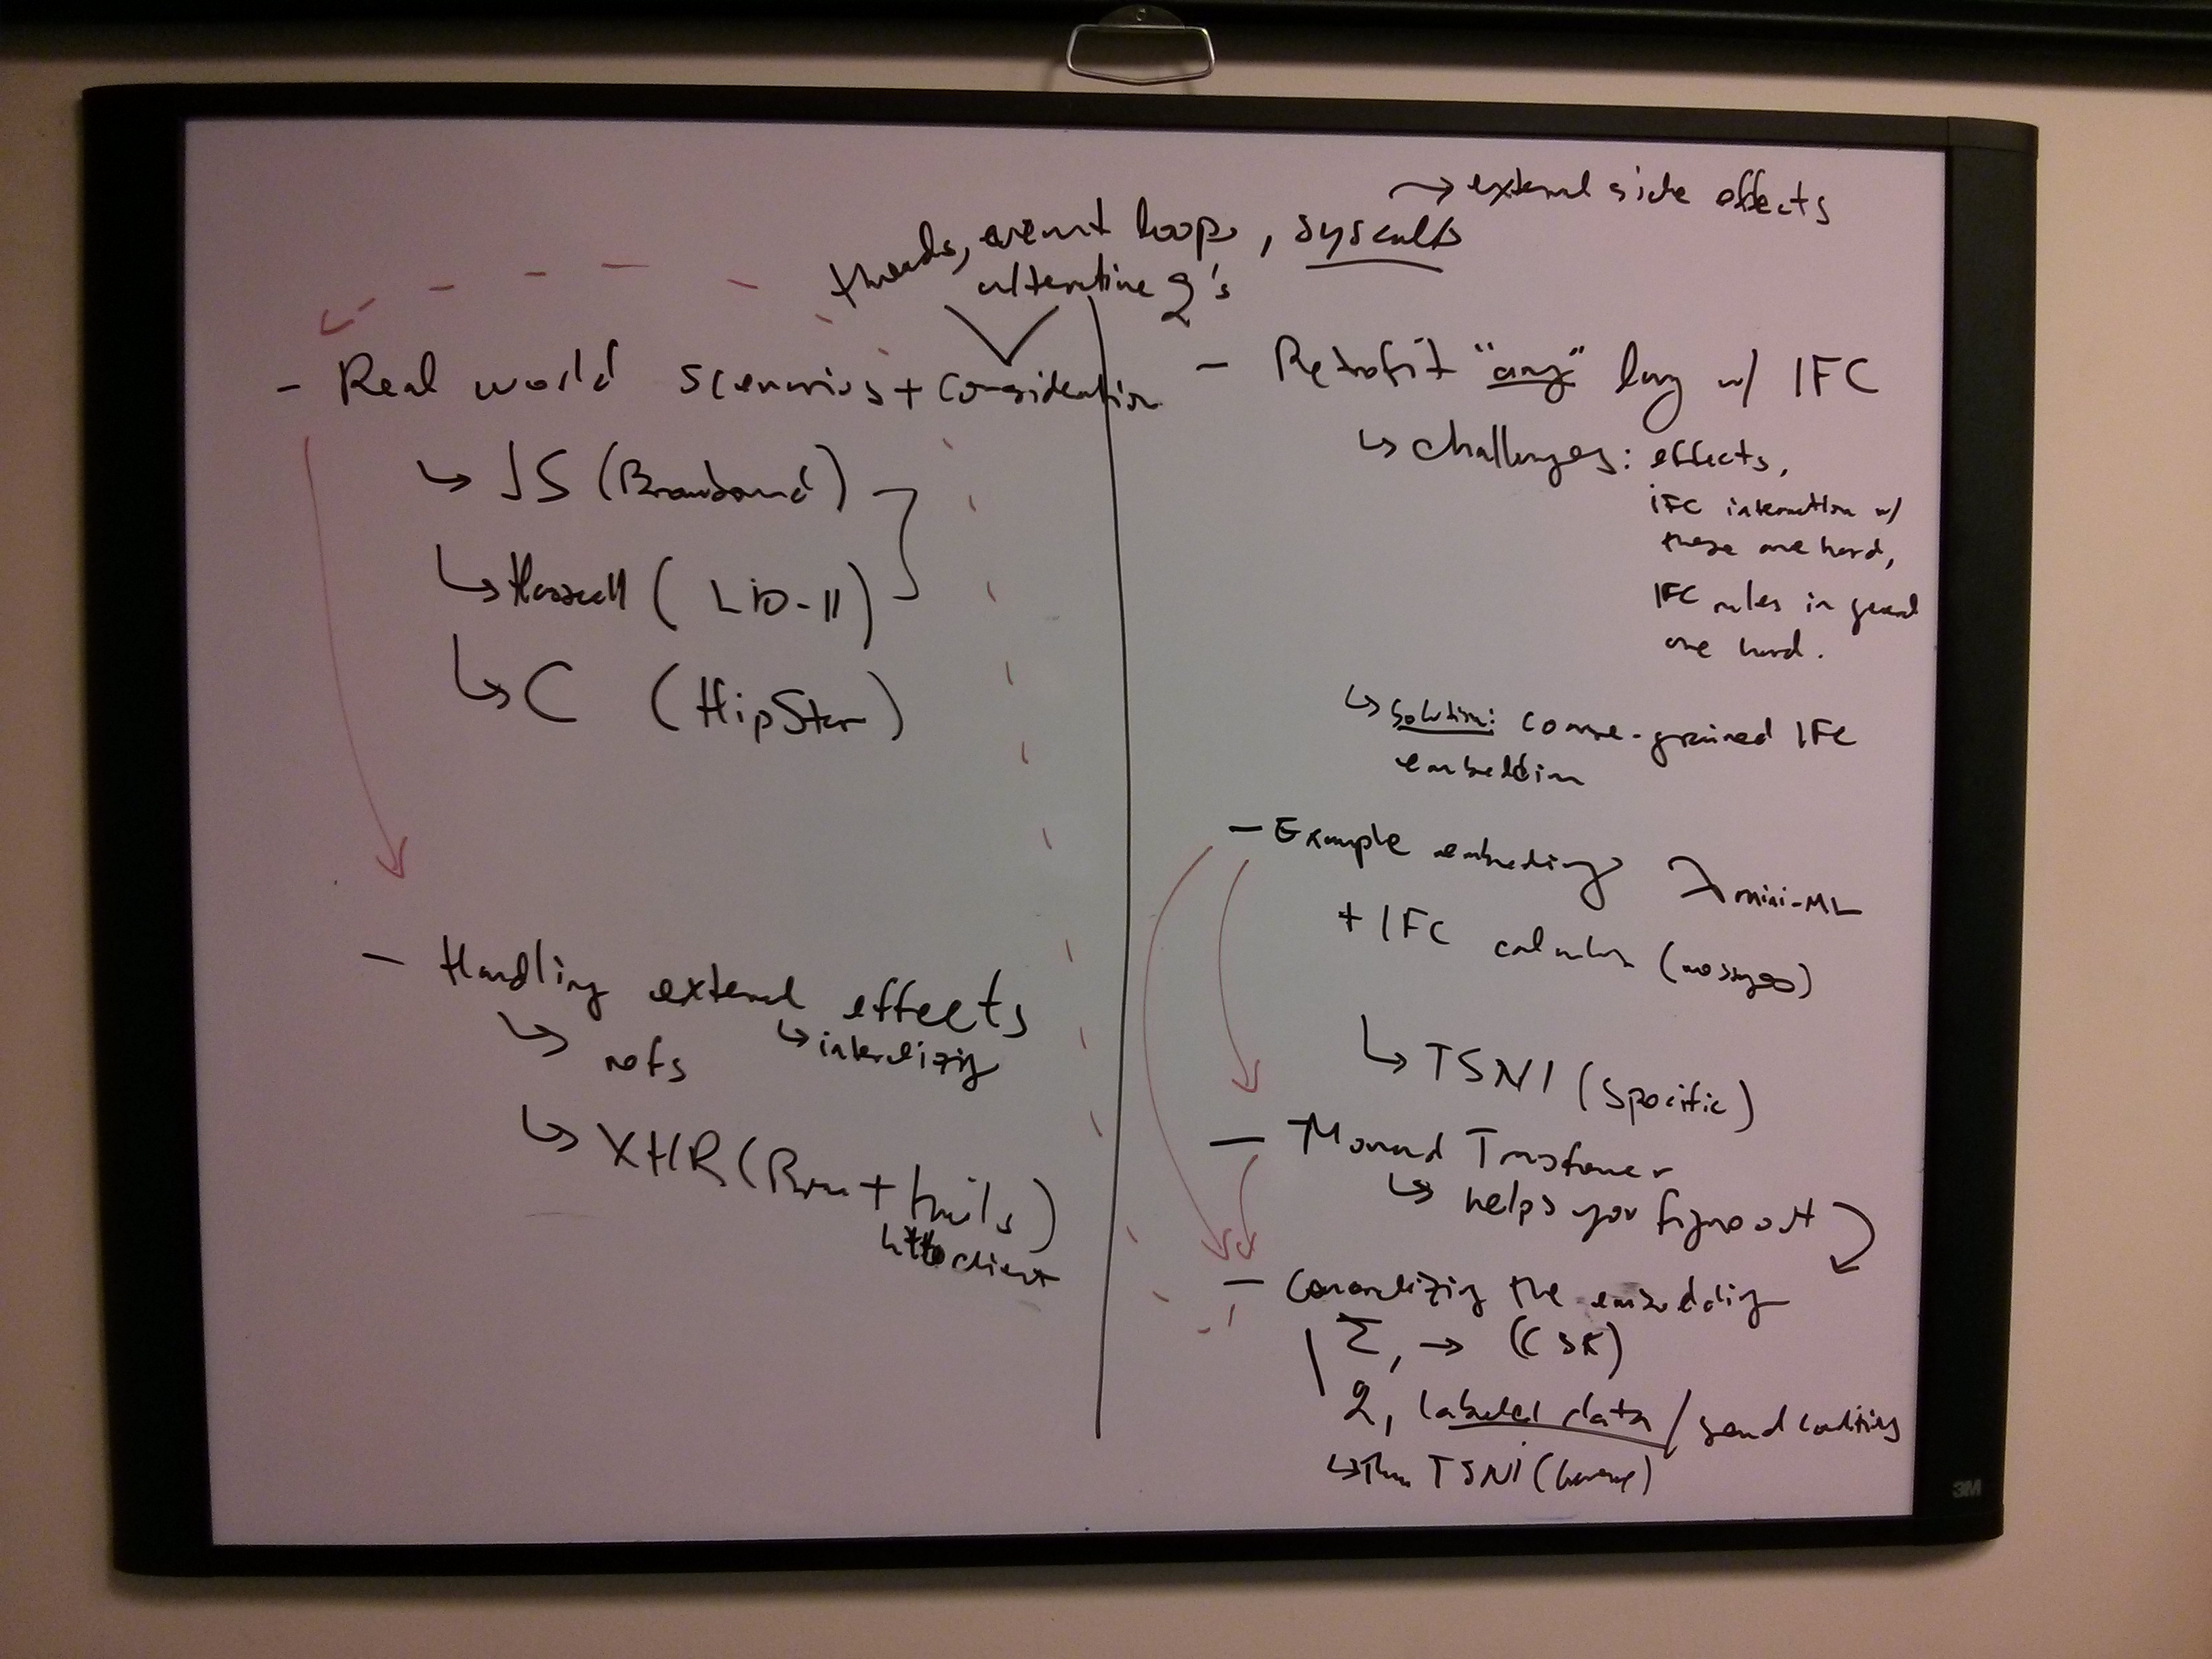 → external side effects
threads, event loops, syscalls
alternative 2's
- Real world scenarios + consideration
↳ JS (Browbound)
↳ Haskell (LIO-II)
↳ C (HipStar)
- Handling external effects
↳ internalizing
↳ refs
↳ XHR (Brow + hails)
http client
- Retrofit "any" lang w/ IFC
↳ challenges: effects,
IFC interaction w/
these are hard,
IFC rules in general
are hard.
↳ solution: coarse-grained IFC
embedding
- Example embedding λ mini-ML
+ IFC calculus (messages)
↳ TSNI (specific)
- Monad Transformer
↳ helps you figure out
- Generalizing the embedding
Σ, → (CSK)
2, labeled data / send conditions
↳ Thm TSNI (general)
3M